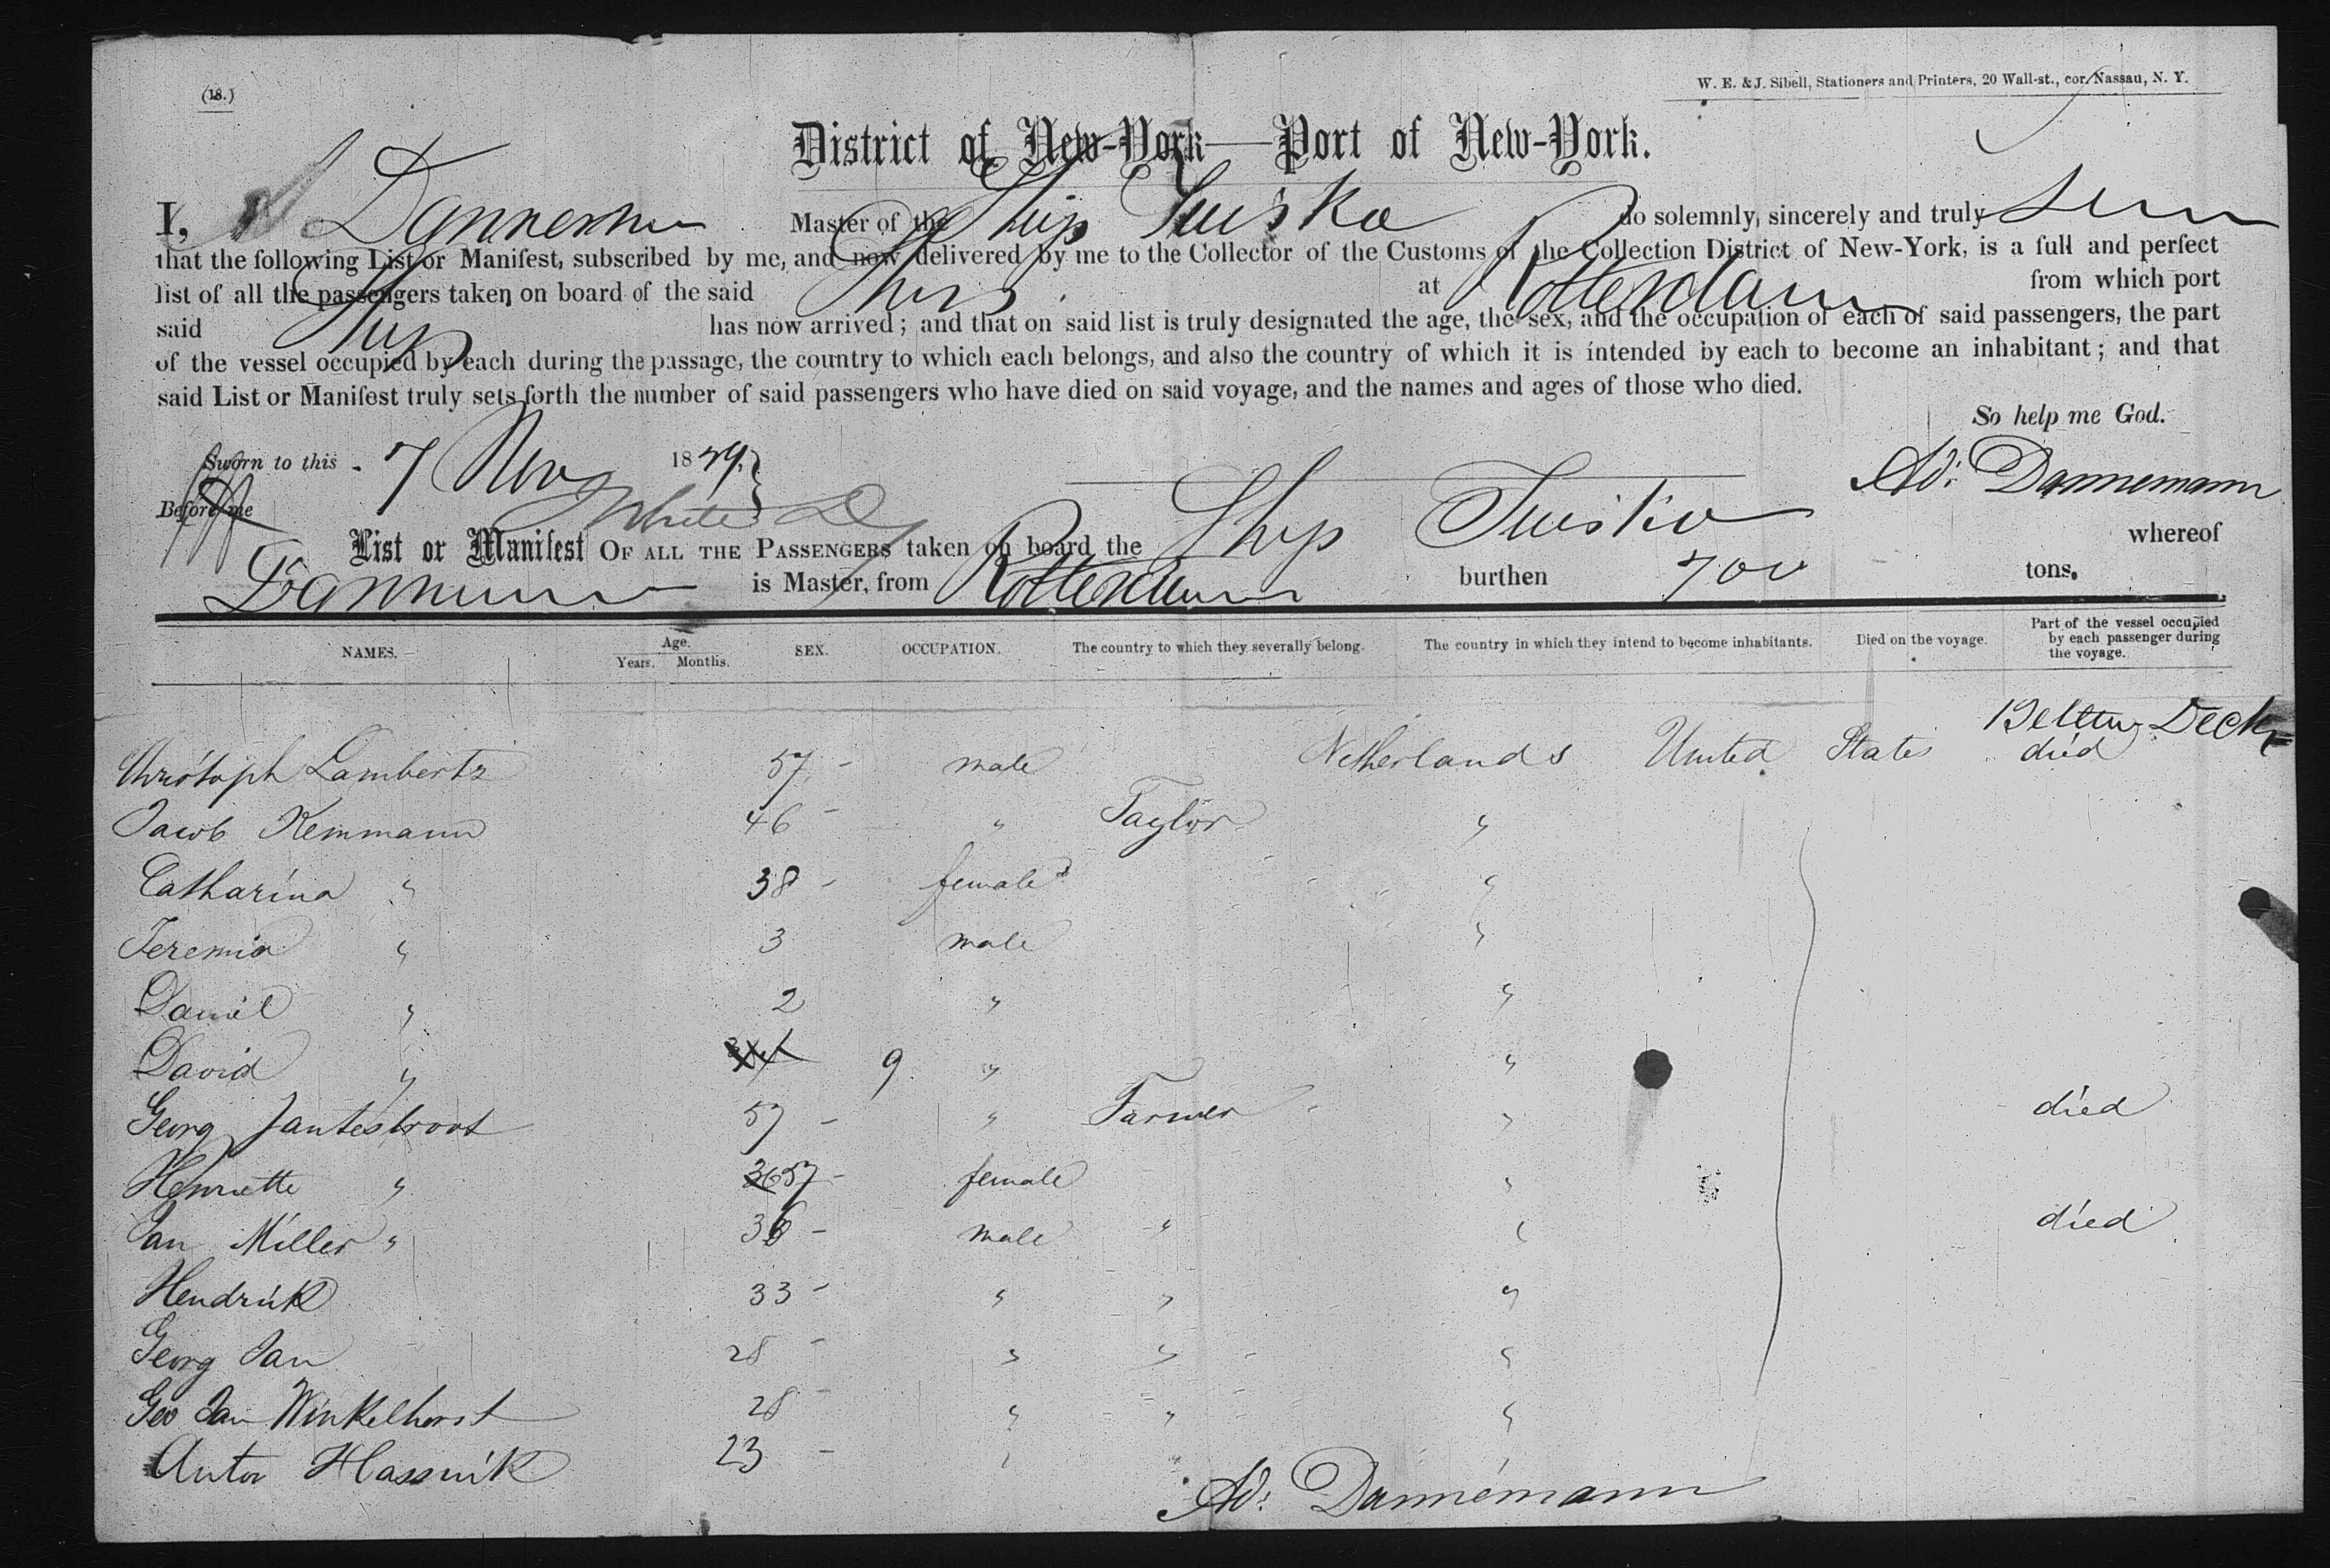 (18.)
W. E. & J. Sibell, Stationers and Printers, 20 Wall-st., cor. Nassau, N. Y.
District of New-York—Port of New-York.
I, Dannemann Master of the Ship Tuisko do solemnly, sincerely and truly
that the following List or Manifest, subscribed by me, and now delivered by me to the Collector of the Customs of the Collection District of New-York, is a full and perfect
list of all the passengers taken on board of the said Ship at Rotterdam from which port
said Ship has now arrived; and that on said list is truly designated the age, the sex, and the occupation of each of said passengers, the part
of the vessel occupied by each during the passage, the country to which each belongs, and also the country of which it is intended by each to become an inhabitant; and that
said List or Manifest truly sets forth the number of said passengers who have died on said voyage, and the names and ages of those who died.
So help me God.
Sworn to this 7 Nov 1849,
Ad. Dannemann
Before me
List or Manifest OF ALL THE PASSENGERS taken on board the Ship Tuisko whereof
Dannemann is Master, from Rotterdam burthen 700 tons.
NAMES. Age. Years. Months. SEX. OCCUPATION. The country to which they severally belong. The country in which they intend to become inhabitants. Died on the voyage. Part of the vessel occupied by each passenger during the voyage.
Deck
Christoph Lambertz 57 - male Netherlands United States died
Jacob Kemmann 46 - " Taylor "
Catharina " 38 - female "
Jeremia " 3 male "
Daniel " 2 " "
David " 9 " "
Georg 57 - " Farmer " died
Henriette " 57 - female "
Jan Miller " 36 - male " " died
Hendrik 33 - " " "
Georg Jan 28 - " " "
Geo Jan Winkelhorst 28 - " " "
Anton Hassink 23 - " "
Ad. Dannemann